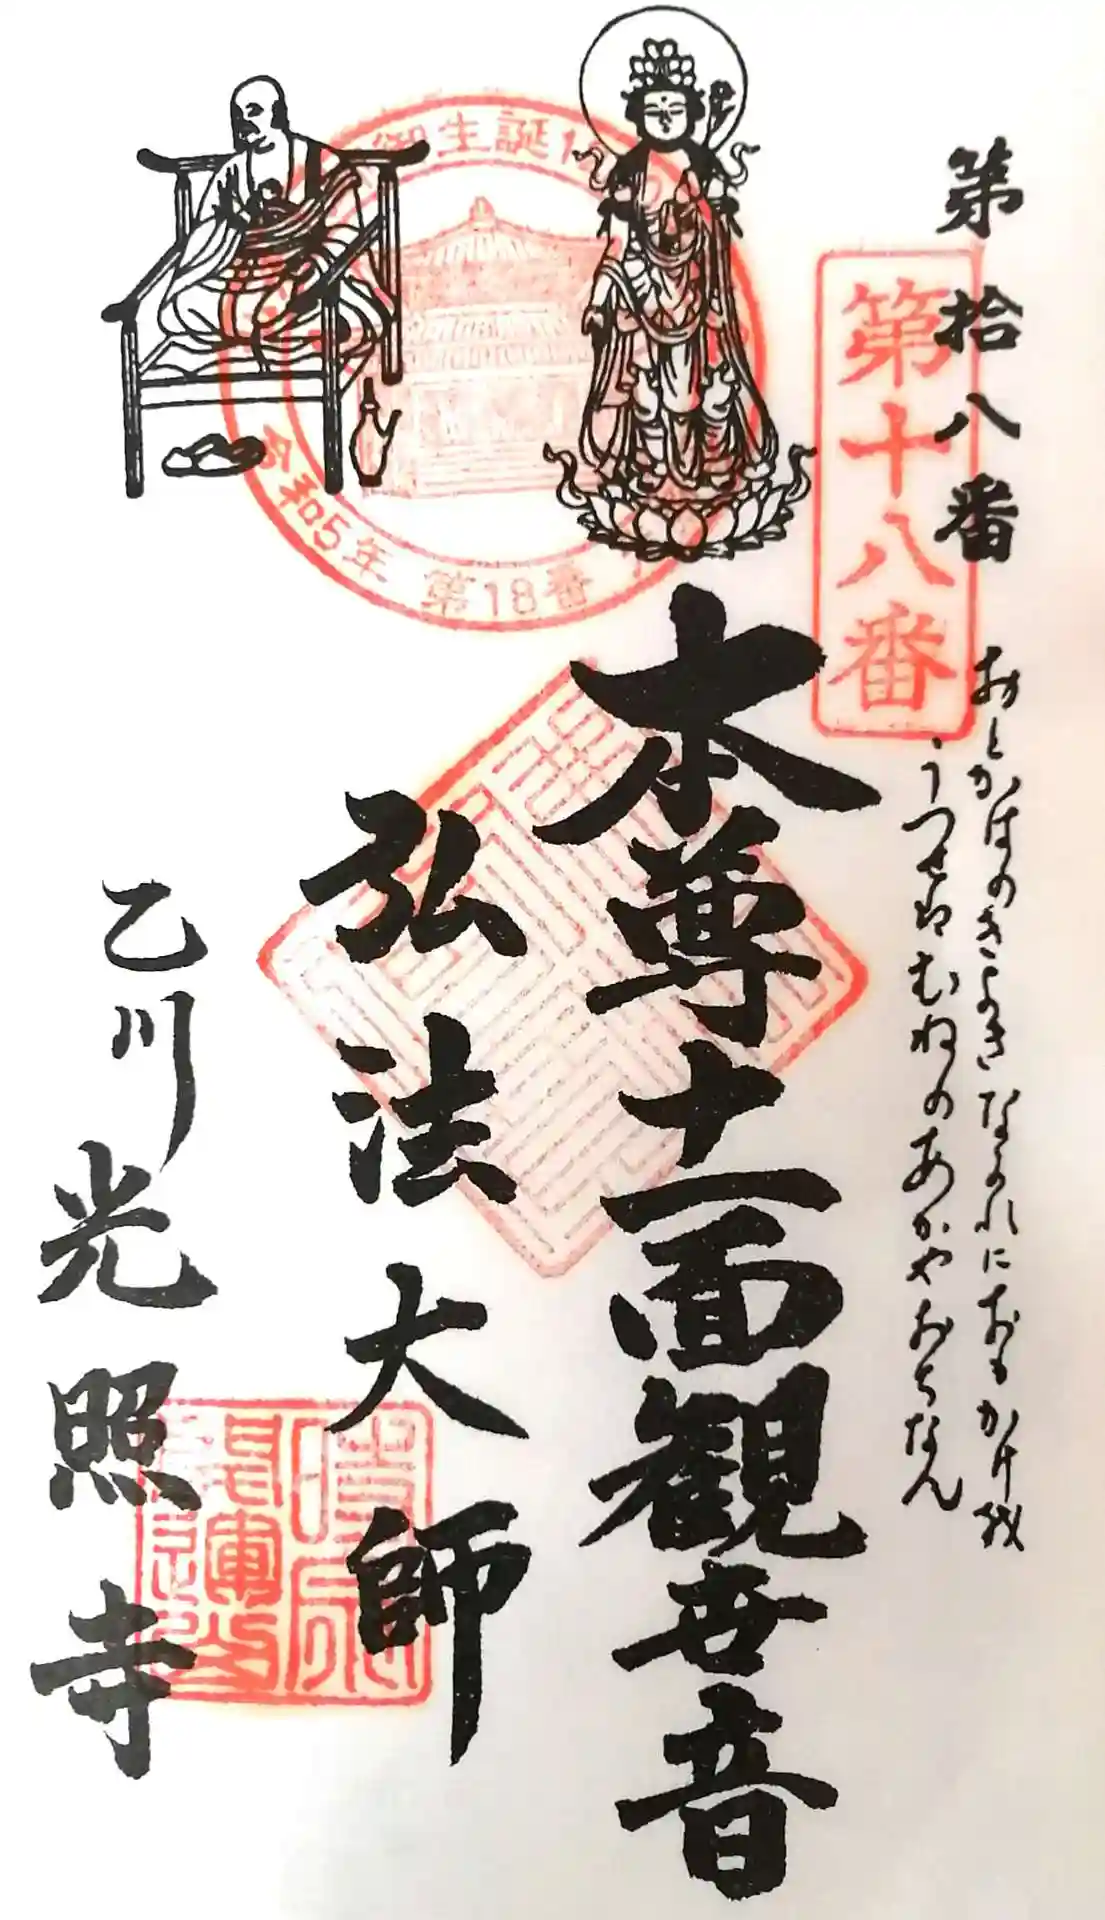 第拾八番
第十八番
おとがはのきよきながれにおもかげは
うつせばむねのあかやおちなん
本尊十一面観世音
弘法大師
乙川光照寺
御生誕
令和5年 第18番